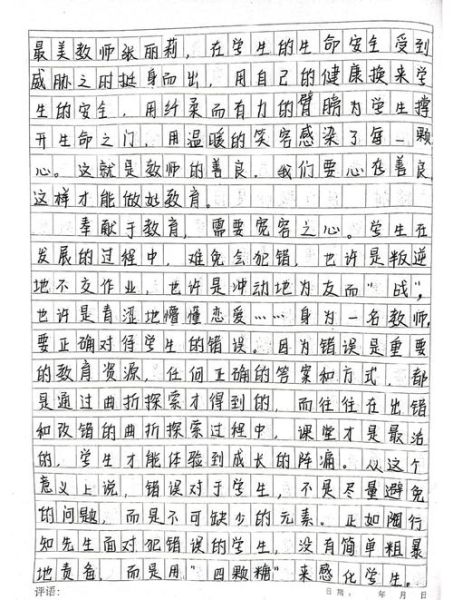 最美教师张丽莉，在学生的生命安全受到
威胁之时挺身而出，用自己的健康换来学
生的安全，用纤柔而有力的臂膀为学生撑
开生命之门，用温暖的笑容感染了每一颗
心。这就是教师的善良。我们要心存善良，
这样才能做好教育。
奉献于教育，需要宽容之心。学生在
发展的过程中，难免会犯错，也许是叛逆
地不交作业，也许是冲动地为友而"战"，
也许是青涩地懵懂恋爱……身为一名教师，
要正确对待学生的错误。因为错误是重要
的教育资源，任何正确的答案和方式，都
是通过曲折探索才得到的，而往往在出错
和改错的曲折探索过程中，课堂才是最活
的，学生才能体验到成长的阵痛。从这个
意义上说，错误对于学生，不是尽量避免
的问题，而是不可缺少的元素。正如陶行
知先生面对犯错误的学生，没有简单粗暴
地责备，而是用"四颗糖"来感化学生。
评语：
日期： 年 月 日